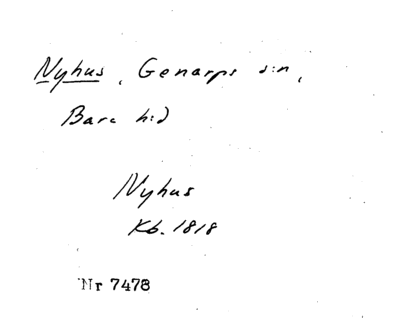 Nyhus, Genarps s:n,
Bara h:d
Nyhus
Kb. 1818
Nr 7478